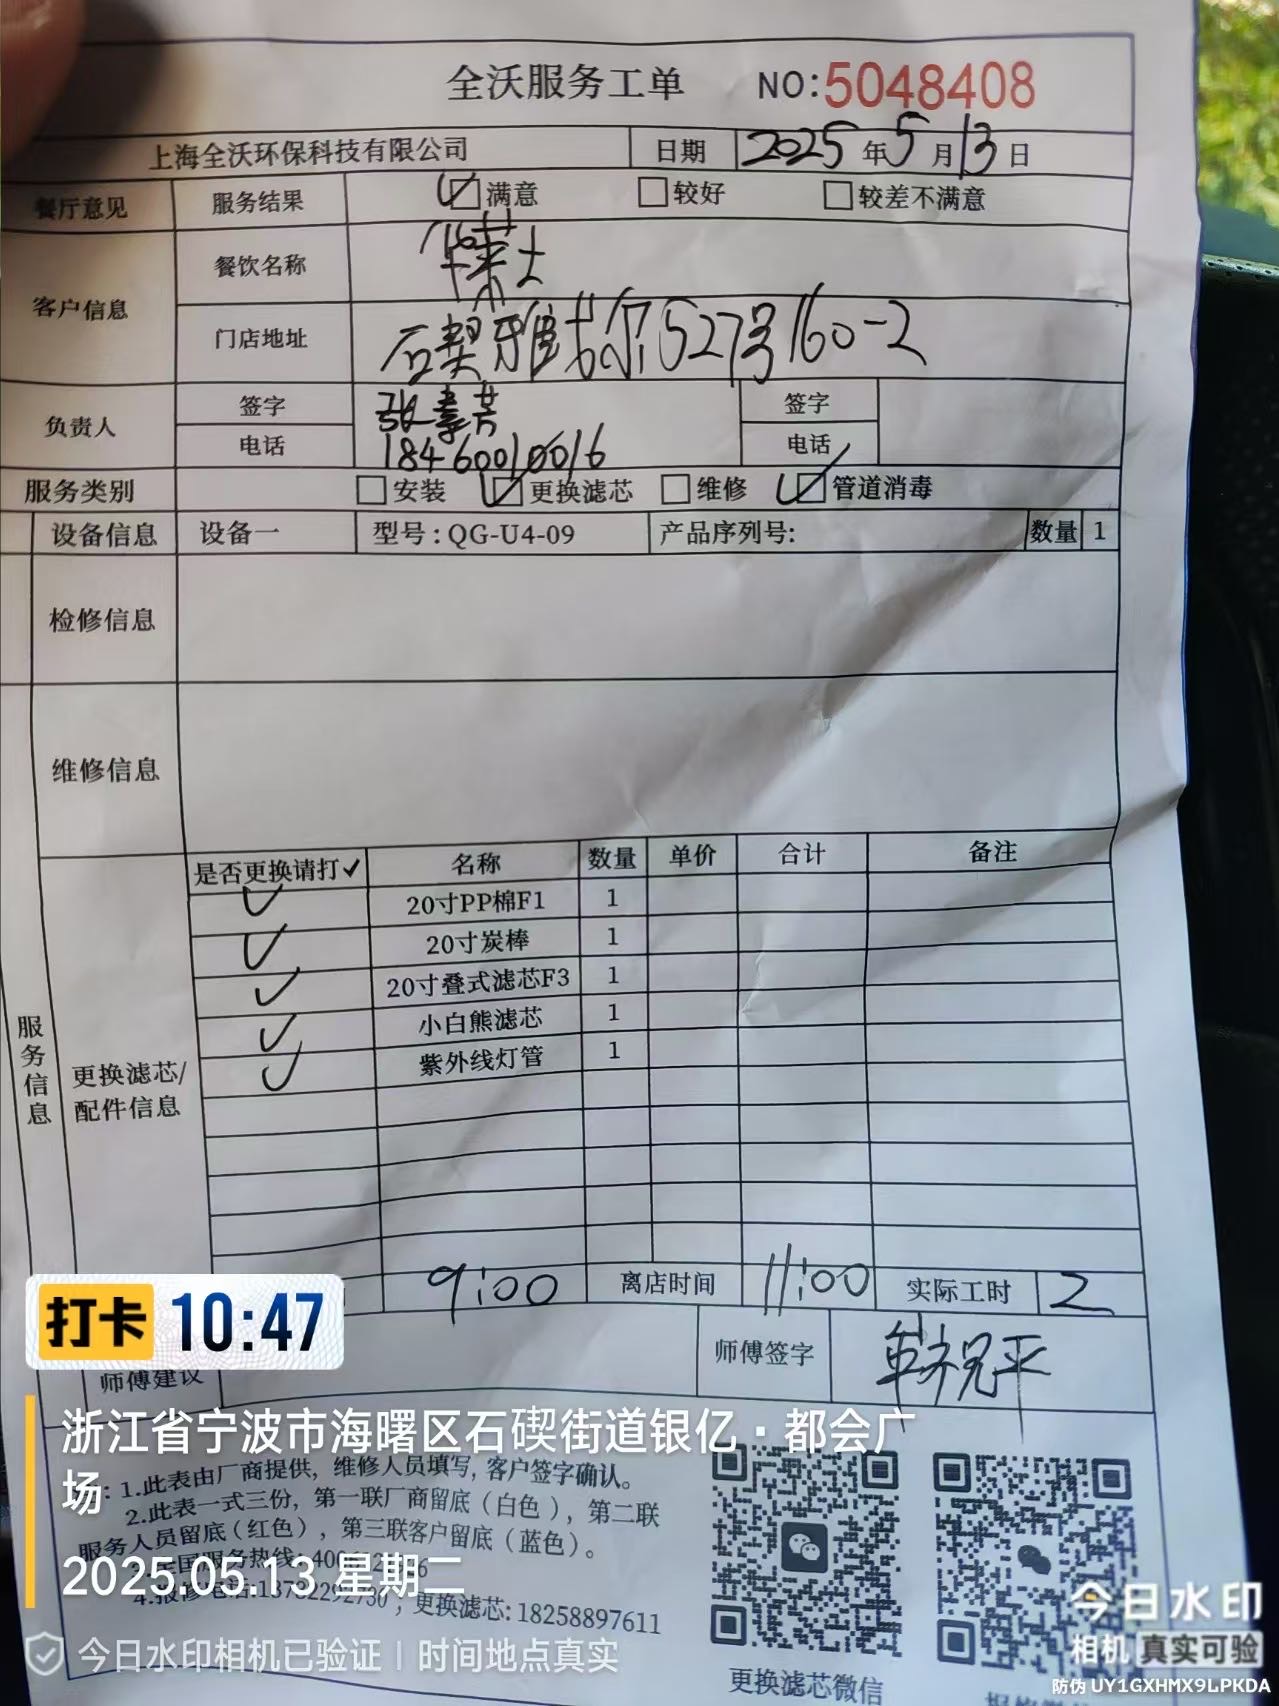 全沃服务工单 NO:5048408
上海全沃环保科技有限公司 日期 2025年5月13日
餐厅意见 服务结果 满意 较好 较差不满意
客户信息 餐饮名称 华莱士
门店地址 石契雅戈尔527号160-2
负责人 签字 签字
电话 18460010016 电话
服务类别 安装 更换滤芯 维修 管道消毒
设备信息 设备一 型号:QG-U4-09 产品序列号: 数量 1
检修信息
维修信息
是否更换请打✓ 名称 数量 单价 合计 备注
✓ 20寸PP棉F1 1
✓ 20寸炭棒 1
✓ 20寸叠式滤芯F3 1
✓ 小白熊滤芯 1
✓ 紫外线灯管 1
服务信息
更换滤芯/
配件信息
9:00 离店时间 11:00 实际工时 2
师傅建议 师傅签字
打卡 10:47
浙江省宁波市海曙区石碶街道银亿·都会广
场
1.此表由厂商提供,维修人员填写,客户签字确认。
2.此表一式三份,第一联厂商留底(白色),第二联
服务人员留底(红色),第三联客户留底(蓝色)。
全国服务热线:
2025.05.13 星期二
4.报修电话:13732292730;更换滤芯:18258897611
今日水印相机已验证 | 时间地点真实
更换滤芯微信
今日水印
相机 真实可验
防伪 UY1GXHMX9LPKDA